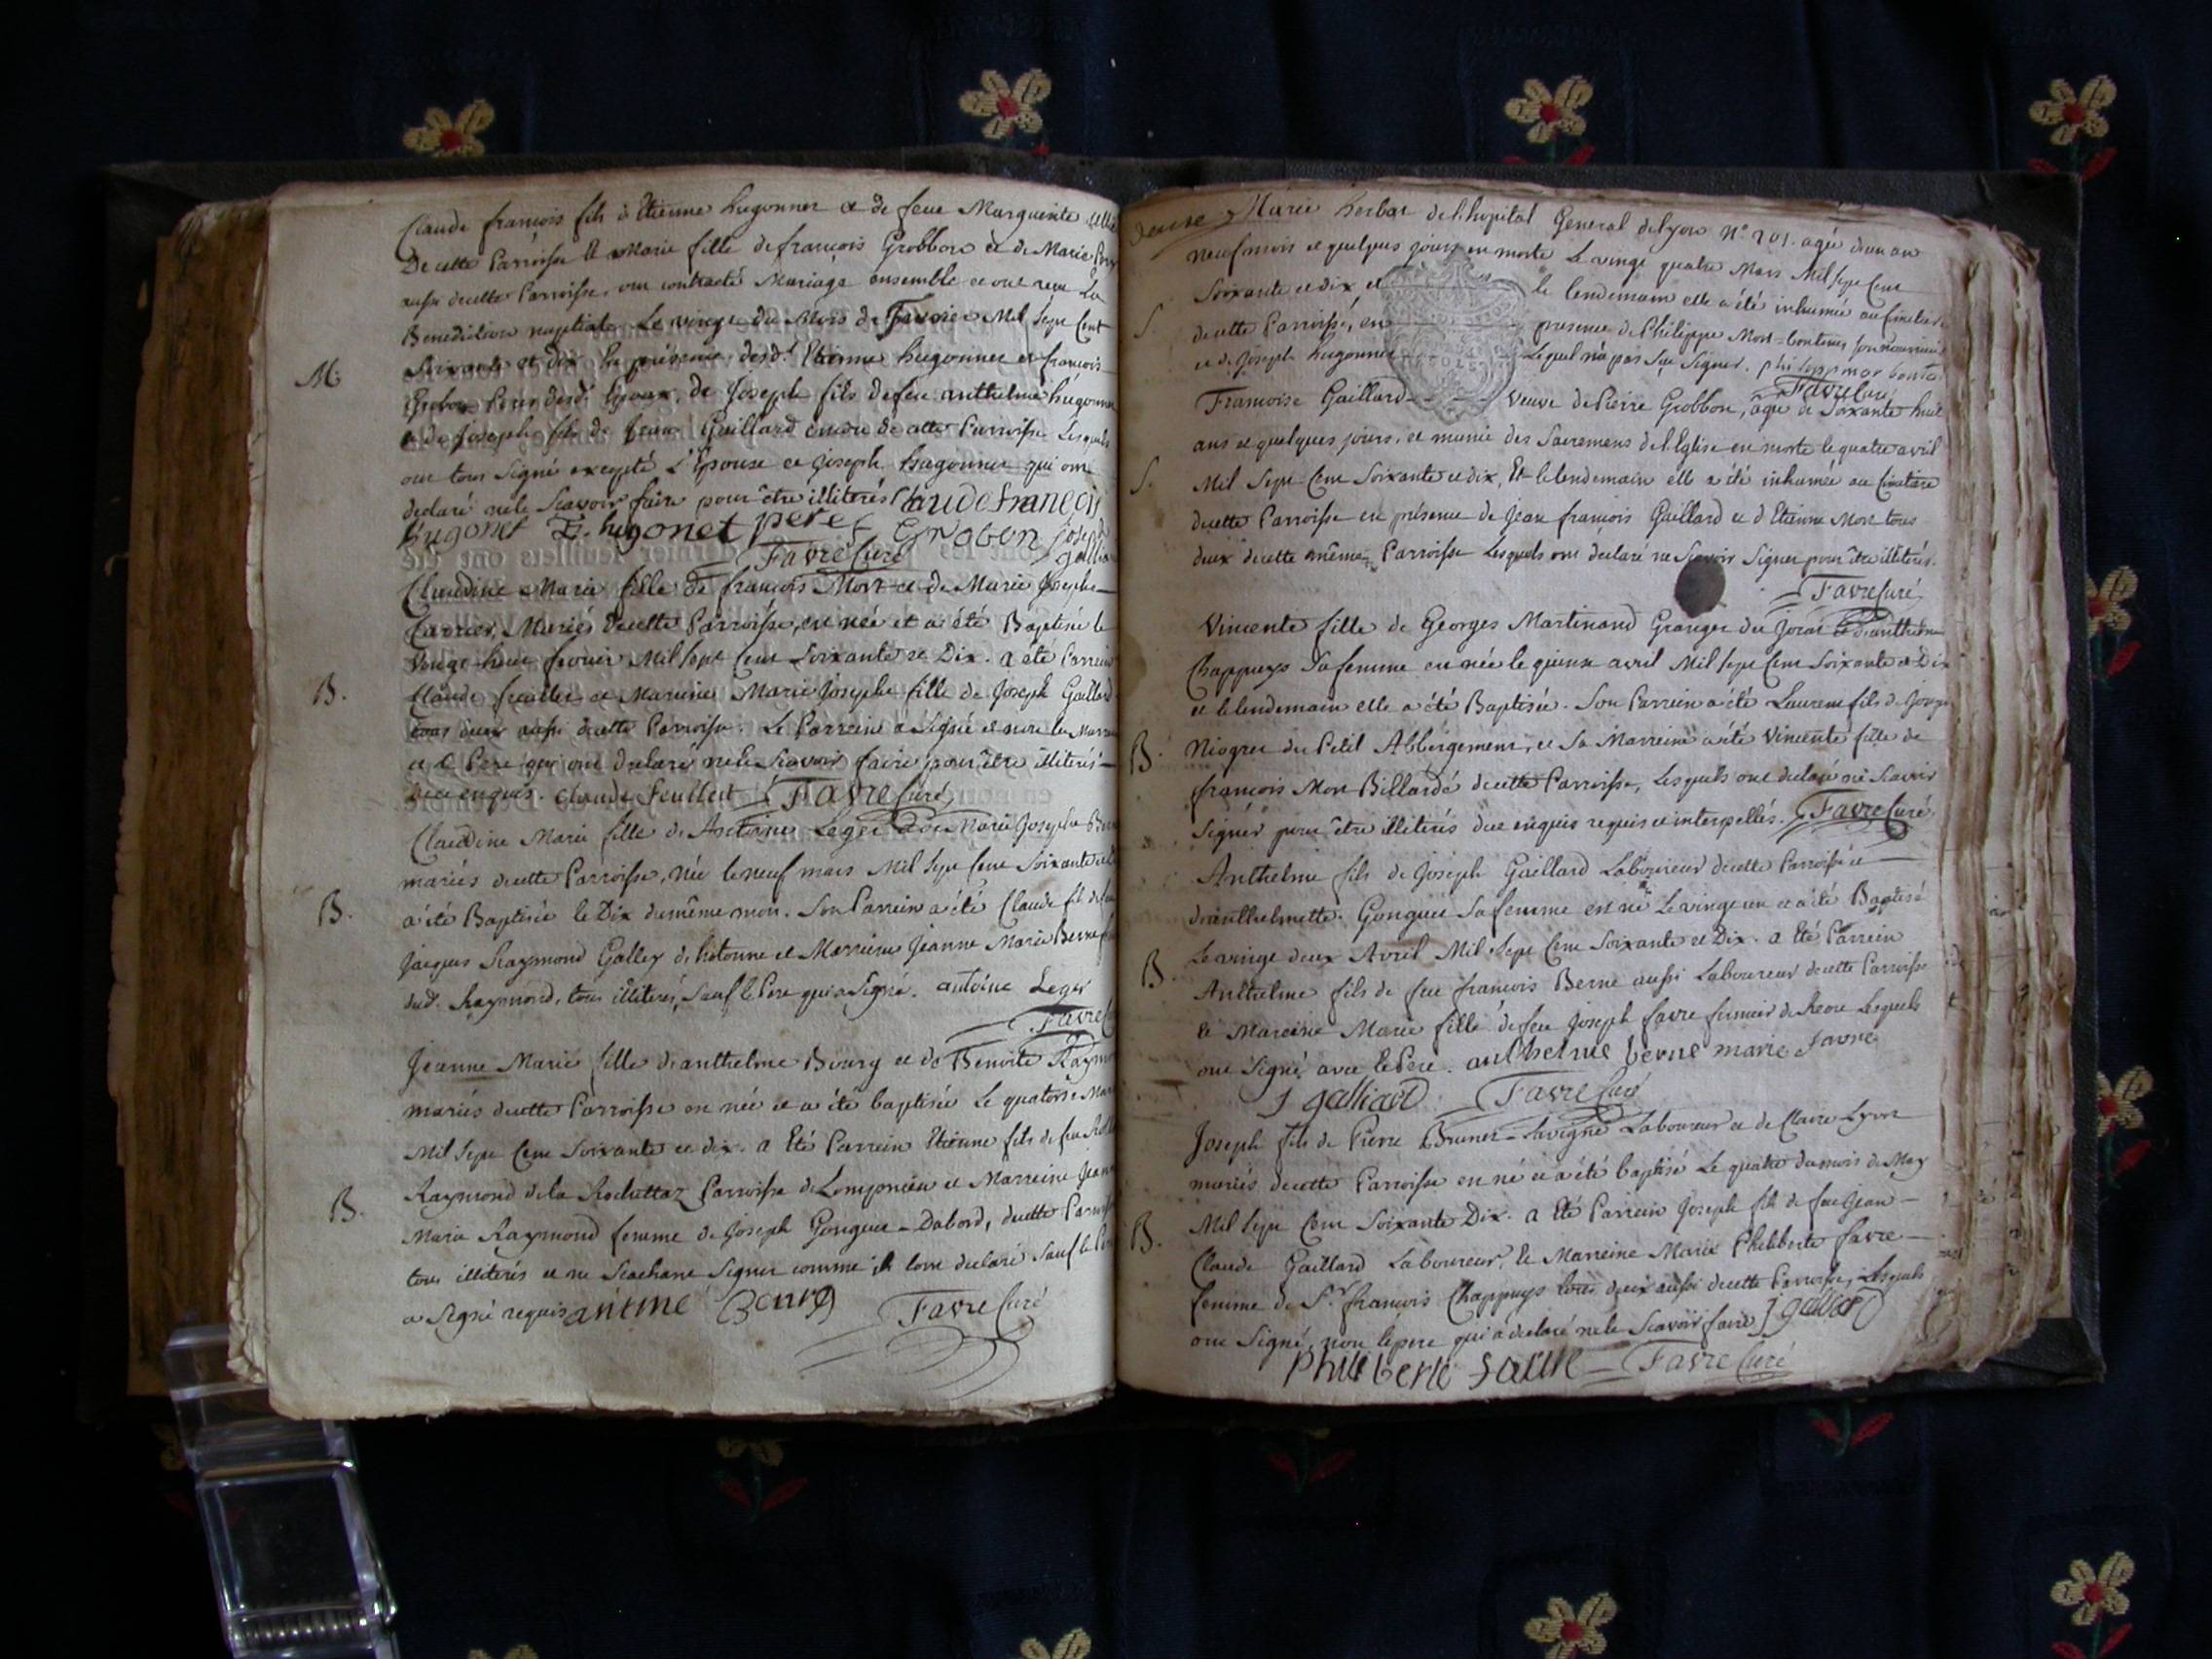 Claude françois fils à Etienne hugonner et de feue Marguerite
De cette Parroisse Et Marie fille de françois Grobbon et de Marie
aussi de cette Parroisse, ont contracté Mariage ensemble et ont reçu La
Benediction nuptiale Le vingt du Mois de Fevrier Mil Sept Cent
M. Soixante et dix En présence desd.t Etienne hugonner et françois
Grobon Peres desd. Epoux, de Joseph fils de feu anthelme hugonner
et de Joseph fils de feu Gaillard de cette Parroisse Lesquels
ont tous Signé excepté L'Epouse et Joseph hugonner qui ont
declaré ne le Scavoir faire pour être illiterés Claude françois
hugonet E. hugonet pere Grobon joseph
Favre Curé galliard
Claudine Marie fille de françois Mort et de Marie Josephe
Carrier, Mariés de cette Parroisse, est née et a été Baptisée le
Vingt-huit fevrier Mil Sept Cent Soixante et Dix. a été Parrein
B. Claude feuillet et Marreine Marie Josephe fille de Joseph Gaillard
tous deux aussi de cette Parroisse. Le Parrein a Signé et non la Marreine
et le Pere qui ont declaré ne le Scavoir faire pour être illiterés
de ce enquis. Claude Feullett Favre Curé
Claudine Marie fille de Antoine Leger et de Marie Josephe
mariés de cette Parroisse, née le neuf mars Mil Sept Cent Soixante et
B. a été Baptisée le Dix du même mois. Son Parrein a été Claude fils de
Jacques Raymond Galley d'hotonne et Marreine Jeanne Marie Berne
dud. Raymond, tous illiterés, Sauf le Pere qui a Signé. antoine Leger
Favre
Jeanne Marie fille d'anthelme Bourg et de Benoite Raymond
mariés de cette Parroisse est née et a été baptisée Le quatorze Mars
Mil Sept Cent Soixante et dix. a Eté Parrein Etienne fils de feu
B. Raymond de la Rochettaz Parroisse de Lompnieu et Marreine Jeanne
Marie Raymond femme de Joseph Gonguet-Dabord, de cette Parroisse
tous illiterés et ne Scachant Signer comme ils l'ont declaré Sauf le Pere
a Signé requis antme Bourg Favre Curé
Marie herbar de l'hopital General de Lyon N° 201. agée d'un an
neuf mois et quelques jours est morte Le vingt quatre Mars Mil Sept Cent
Soixante et dix, et le lendemain elle a été inhumée au Cimetiere
S. de cette Parroisse, en presence de Philippe Mort-bontems, son nourricier
et de Joseph hugonner Lequel n'a pas Sçu Signer. philippe mor bonta
Favre Curé
Francoise Gaillard veuve de Pierre Grobbon, âgée de Soixante huit
ans et quelques jours, et munie des Sacremens de l'Eglise est morte le quatre avril
S. Mil Sept Cent Soixante et dix, Et le lendemain elle a été inhumée au Cimetiere
de cette Parroisse en présence de Jean francois Gaillard et d'Etienne Mort tous
deux de cette même Parroisse Lesquels ont declaré ne Scavoir Signer pour être illiterés.
Favre Curé
Vincente fille de Georges Martinand Granger du Jorat et d'anthelme
Chappuys Sa femme est née le quinze avril Mil Sept Cent Soixante et Dix
et le lendemain elle a été Baptisée. Son Parrein a été Laurent fils de Joseph
B. Niogret du Petit Abbergement, et Sa Marreine a été Vincente fille de
françois Mort Billardé de cette Parroisse, Lesquels ont declaré ne Scavoir
Signer pour être illiterés de ce enquis requis et interpellés. Favre Curé
Anthelme fils de Joseph Gaillard Laboureur de cette Parroisse et
d'anthelmette Gonguet Sa femme est né Le vingt un et a été Baptisé
B. Le vingt deux Avril Mil Sept Cent Soixante et Dix. a Eté Parrein
Anthelme fils de feu francois Berne aussi Laboureur de cette Parroisse
et Marreine Marie fille de feu Joseph favre fermier de Lesquels
ont Signé avec le Pere. anthelme berne marie favre
J galliard Favre Curé
Joseph fils de Pierre Brunet-Lavigne Laboureur et de Claire Lyon
mariés de cette Parroisse est né et a été baptisé Le quatre du mois de May
B. Mil Sept Cent Soixante Dix. a Eté Parrein Joseph fils de feu Jean
Claude Gaillard Laboureur, et Marreine Marie Philiberte favre
femme de S.r francois Chappuys tous deux aussi de cette Parroisse, Lesquels
ont Signé, non le pere qui a declaré ne le Scavoir faire J galliard
Philiberte favre Favre Curé